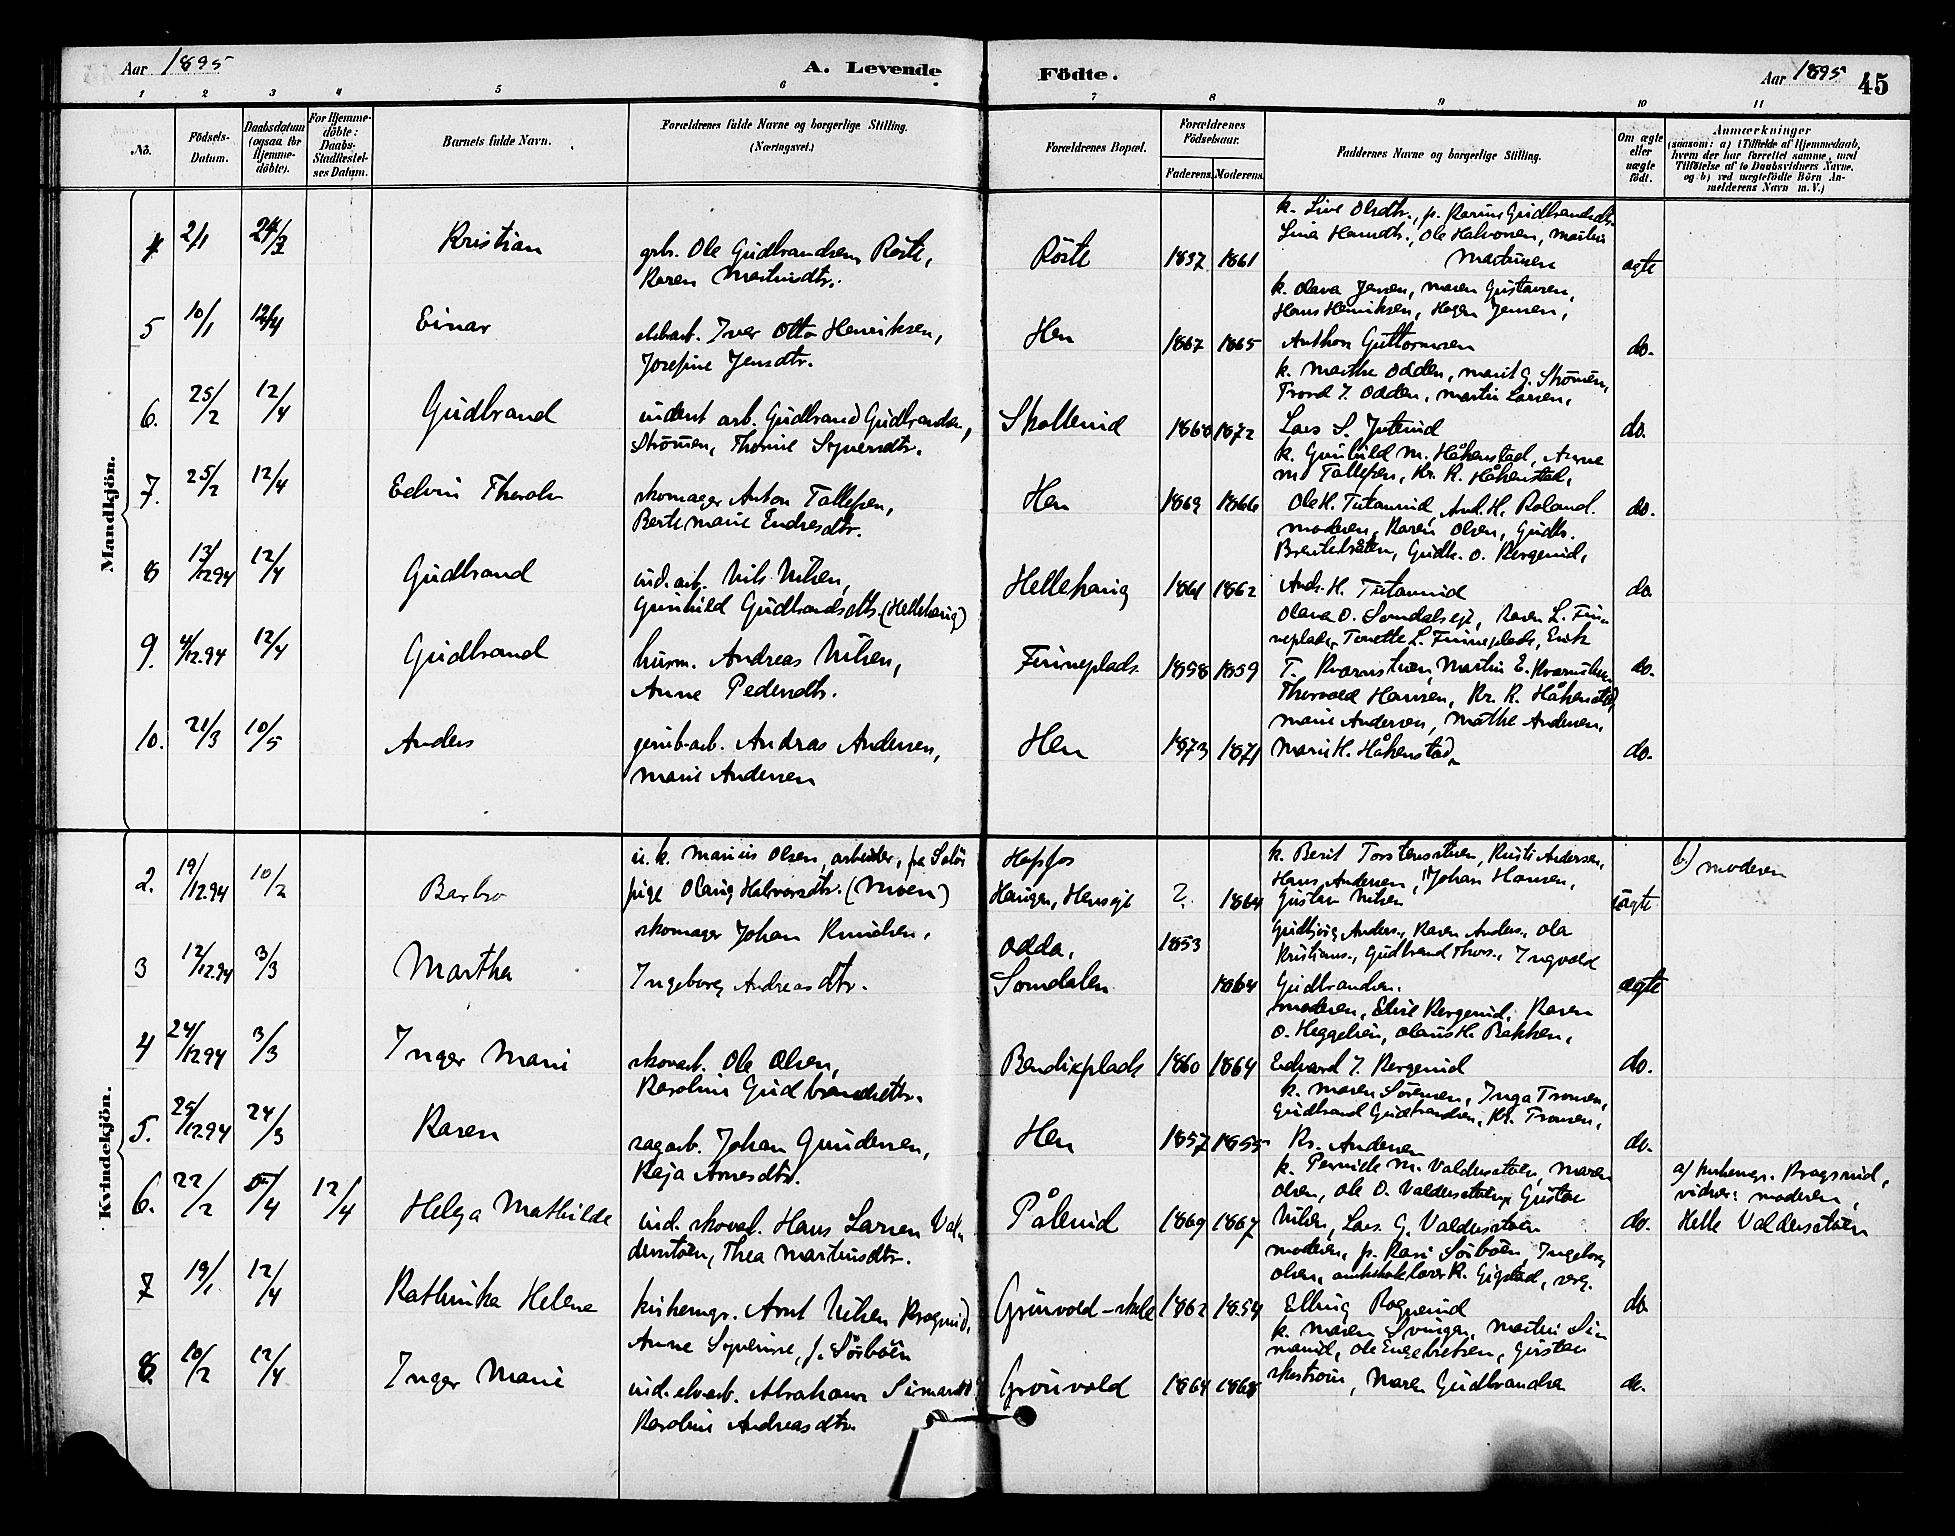 Aar 1895
A. Levende Födte.
Aar 1895 45
1 2 3 4 5 6 7 8 9 10 11
No.
Födsels-Datum.
Daabsdatum (ogsaa for Hjemme-döbte).
For Hjemme-döbte: Daabs-Stadfæstel-ses Datum.
Barnets fulde Navn.
Forældrenes fulde Navne og borgerlige Stilling.
(Næringsvei.)
Forældrenes Bopæl.
Forældrenes Födselsaar.
Faderens. Moderens.
Faddernes Navne og borgerlige Stilling.
Om ægte eller uægte födt.
Anmærkninger
(saasom: a) i Tilfælde af Hjemmedaab, hvem der har forrettet samme, med Tilföielse af to Daabsvidners Navne. og b) ved uægtefödte Börn An-melderens Navn m. V.)
Mandkjön.
4 2/1 24/3 Kristian
Ole Gudbrandsen Röste,
Karen Martinsdtr.
Röste 1837 1861
k. Live Olsdtr., p. Karine Gudbrandsdtr.
Lina Hansdtr., Ole Halvorsen, Martin
Martinsen
ægte
5 10/1 12/4 Einar
Iver Otto Henriksen,
Josefine Jensdtr.
Hen 1867 1865
k. Olava Jensen, Maren Gustavsen,
Hans Henriksen, Hagen Jensen,
Anthon Guttormsen
do.
6. 25/2 12/4 Gudbrand
arb. Gudbrand Gudbrandsen
Strömen, Thorine Syversdtr.
Skollerud 1868 1872
k. Marthe Odden, Marit G. Strömen,
Trond T. Odden, Martin Larsen,
Lars S.
do.
7. 25/2 12/4 Edvin Thorolv
skomager Anton Tollefsen,
Berte Marie Endresdtr.
Hen 1869 1866
k. Gunhild M. Håkenstad, Anne
M Tollefsen, Kr. R. Håkenstad,
Ole H. Tutanrud, And. H. Roland.
do.
8 13/12.94 12/4 Gudbrand
ind. arb. Nils Nilsen,
Gunhild Gudbrandsdtr. (Hellehaug)
Hellehaug 1861 1862
moderen, Karen Olsen, Gudb.
Brentebråten, Gudb. O. Bergerud,
And. H. Tutanrud
do
9. 4/12.94 12/4 Gudbrand
husm. Andreas Nilsen,
Anne Pedersdtr.
Finneplads 1858 1859
Olava O. Somdalsejt, Karen L. Fin
neplads, Tonette L. Finneplads, Erik
T. Kvarnstuen, Martin E. Kvarnstuen
do.
10. 21/3 10/5 Anders
arb. Andras Andersen,
Marie Andersen
Hen 1873 1871
Thorvald Hansen, Kr. R. Håkenstad,
Marie Andersen, Mathe Andersen,
Marie K. Håkenstad
do.
Kvindekjön.
2. 19/12.94 10/2 Barbro
u. k. Marius Olsen, arbeider, fra Solör
pige Olaug Halvorsdtr. (Moen)
Höfos
Haugen, Hensejt ?. 1864
k. Berit Torstensstuen, Kristi Andersen,
Hans Andersen, Johan Hansen,
Gustav Nilsen
uægte
b.) moderen
3 12/12.94 3/3 Martha
skomager Johan Knudsen,
Ingeborg Andreasdtr.
Odda, 1853
Somdalen 1864
Gudbjörg Anders., Karen Anders., Ola
Kristians., Gudbrand Thos., Ingvald
Gudbrandsen.
ægte
4 24/12.94 3/3 Inger Marie
skovarb. Ole Olsen,
Karoline Gudbrandsdtr.
Bendixplads 1860 1864
moderen, Elise Bergerud, Karen
O. Heggelien, Olaus H. Bakken,
Edvard T. Bergerud
do.
5. 25/12.94 24/3 Karen
sagarb. Johan Gundersen,
Kaja Arnesdtr.
Hen 1857 1855
k. Maren Sörensen, Inga Tronsen,
Gudbrand Gudbrandsen, Kr. Tronsen,
Kr. Andersen
do.
6. 22/2 5/4 12/4 Helga Mathilde
ind. skovarb. Hans Larsen Val
derstöen, Thea Martinsdtr.
Pålerud 1869 1867
k. Pernille M. Valderstöen, Maren
Olsen, Ole O. Valderstöen, Gustav
Nilsen, Lars. G. Valderstöen
do.
a) kirkesgr. Kragsrud,
vidner: moderen,
Helle Valderstöen
7 19/1 12/4 Kathinka Helene
kirkesgr. Arnt Nilsen Kragsrud,
Anne Syverine, f. Sörböen
Grönvold-skole 1862 1854
moderen, p. Kari Sörböen, Ingeborg
Olsen, K. Gigstad,
Elling Rognerud
do.
8. 10/2 12/4 Inger Marie
ind. elvarb. Abraham
Karoline Andreasdtr.
Grönvold 1864 1868
k. Maren Svingen, Martin Sim
Ole Engebretsen, Gustav
Maren Gudbrandsen
do.